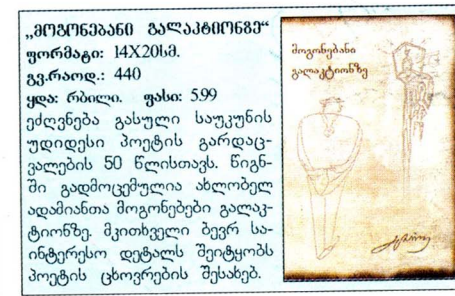 „მოგონებანი გალაკტიონზე“
ფორმატი: 14X20სმ.
გვ.რაოდ.: 440
ყდა: რბილი. ფასი: 5.99
ეძღვნება გასული საუკუნის
უდიდესი პოეტის გარდაც-
ვალების 50 წლისთავს. წიგნ-
ში გადმოცემულია ახლობელ
ადამიანთა მოგონებები გალაკ-
ტიონზე. მკითხველი ბევრ სა-
ინტერესო დეტალს შეიტყობს
პოეტის ცხოვრების შესახებ.
მოგონებანი
გალაკტიონზე